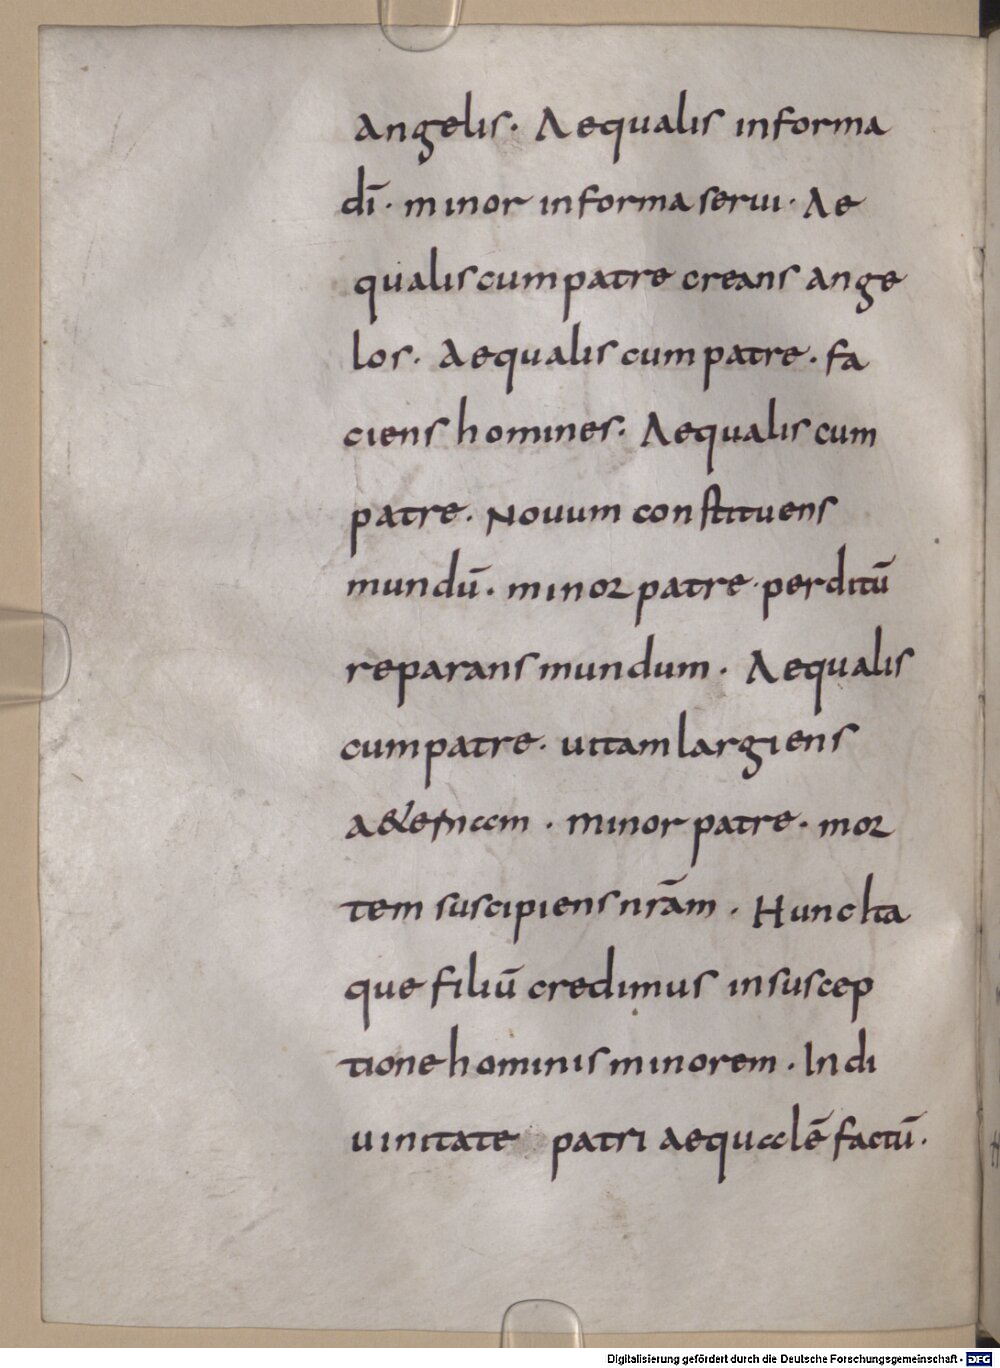 angelis. Aequalis informa
dī. minor informa serui. Ae
qualis cum patre creans ange
los. Aequalis cum patre. fa
ciens homines. Aequalis cum
patre. Nouum constituens
mundū. minor patre. perditū
reparans mundum. Aequalis
cum patre. uitam largiens
aeternam. minor patre. mor
tem suscipiens nr̄am. Hunc Ita
que filiū credimus in suscep
tione hominis minorem. In di
uinitate patri aequalē factū.
Digitalisierung gefördert durch die Deutsche Forschungsgemeinschaft - DFG